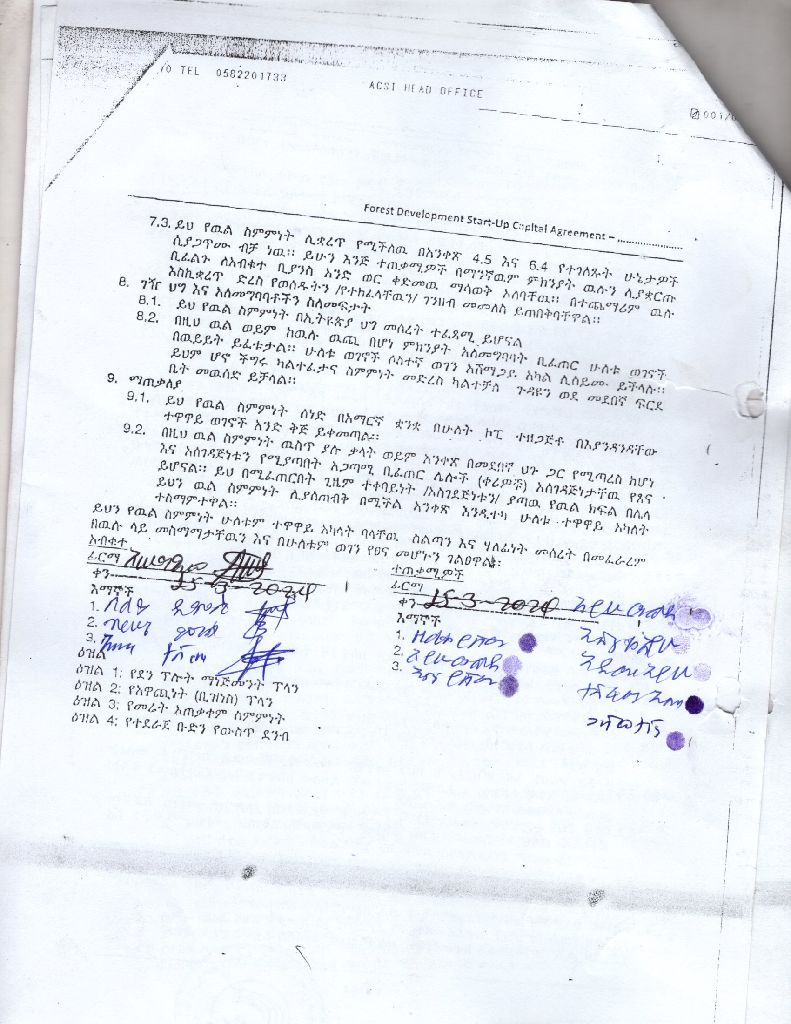 TEL 0582201733
ACSI HEAD OFFICE
001/0
Forest Development Start-Up Capital Agreement – ......................
7.3. ይህ የዉል ስምምነት ሊቋረጥ የሚችለዉ በአንቀጽ 4.5 እና 6.4 የተገለጹት ሁኔታዎች
ሲያጋጥሙ ብቻ ነዉ፡፡ ይሁን እንጅ ተጠቃሚዎች በማንኛዉም ምክንያት ዉሉን ሊያቋርጡ
ቢፈልጉ ለአብቁተ ቢያንስ አንድ ወር ቀድመዉ ማሳወቅ አለባቸዉ፡፡ በተጨማሪም ዉሉ
እስኪቋረጥ ድረስ የወሰዱትን /የተከፈላቸዉን/ ገንዘብ መመለስ ይጠበቅባቸዋል፡፡
8. ገዥ ህግ እና አለመግባባቶችን ስለመፍታት
8.1. ይህ የዉል ስምምነት በኢትዮጵያ ህግ መሰረት ተፈጻሚ ይሆናል
8.2. በዚህ ዉል ወይም ከዉሉ ዉጪ በሆነ ምክንያት አለመግባባት ቢፈጠር ሁለቱ ወገኖች
በዉይይት ይፈቱታል፡፡ ሁለቱ ወገኖች ሶስተኛ ወገን አሸማጋይ አካል ሊሰይሙ ይችላሉ፡፡
ይህም ሆኖ ችግሩ ካልተፈታና ስምምነት መድረስ ካልተቻለ ጉዳዩን ወደ መደበኛ ፍርድ
ቤት መዉሰድ ይቻላል፡፡
9. ማጠቃለያ
9.1. ይህ የዉል ስምምነት ሰነድ በአማርኛ ቋንቋ በሁለት ኮፒ ተዘጋጅቶ በእያንዳንዳቸው
ተዋዋይ ወገኖች አንድ ቅጅ ይቀመጣል፡፡
9.2. በዚህ ዉል ስምምነት ዉስጥ ያሉ ቃላት ወይም አንቀጽ በመደበኛ ህጉ ጋር የሚጣረስ ከሆነ
እና አስገዳጅነቱን የሚያጣበት አጋጣሚ ቢፈጠር ሌሎች (ቀሪዎች) አስገዳጅነታቸዉ የጸና
ይሆናል፡፡ ይህ በሚፈጠርበት ጊዜም ተቀባይነት /አስገደጅነቱን/ ያጣዉ የዉል ክፍል በሌላ
ይህን ዉል ስምምነት ሊያስጠብቅ በሚችል አንቀጽ እንዲተካ ሁለቱ ተዋዋይ አካለት
ተስማምተዋል፡፡
ይህን የዉል ስምምነት ሁለቱም ተዋዋይ አካላት ባላቸዉ ስልጣን እና ሃላፊነት መሰረት በመፈራረም
በዉሉ ላይ መስማማታቸዉን እና በሁለቱም ወገን የፀና መሆኑን ገልፀዋል፡፡
አብቁተ
ፊርማ
ቀን 25-3-2024
እማኞች
1.
2.
3.
ተጠቃሚዎች
ፊርማ
ቀን 25-3-2024
እማኞች
1.
2.
3.
ዕዝል 1: የደን ፕሎት ማኔጅመንት ፕላን
ዕዝል 2: የአዋጪነት (ቢዝነስ) ፕላን
ዕዝል 3: የመሬት አጠቃቀም ስምምነት
ዕዝል 4: የተደራጀ ቡድን የውስጥ ደንብ